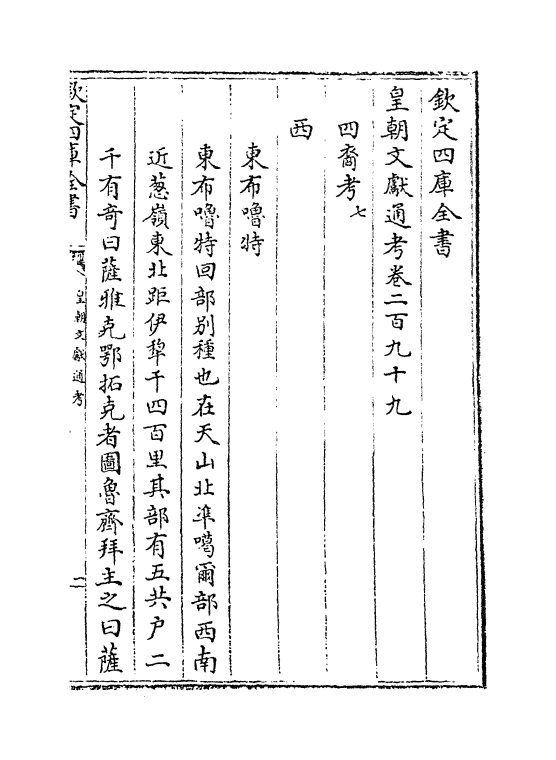 欽定四庫全書
皇朝文獻通考卷二百九十九
四裔考七
西
東布嚕特
東布嚕特回部别種也在天山北準噶爾部西南
近蔥嶺東北距伊犂千四百里其部有五共户二
千有奇曰薩雅克鄂拓克者圖魯齊拜主之曰薩
欽定四庫全書
皇朝文獻通考